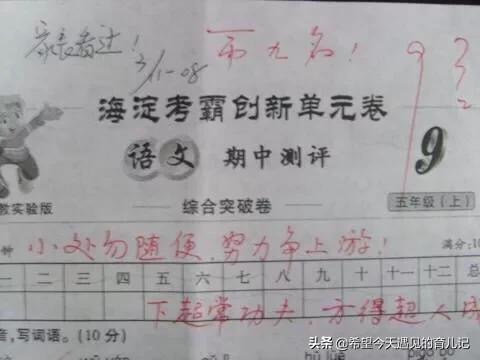 家长看过！ 3/11-08
第九名！
93
海淀考霸创新单元卷
语文 期中测评
9
教实验版
综合突破卷
五年级（上）
钟 小处勿随便，努力争上游！ 满分：10
一 二 三 四 五 六 七 八 九 十 十一 十二 总
下超常功夫，方得超人成
音，写词语。（10分）
头条 @希望今天遇见的育儿记